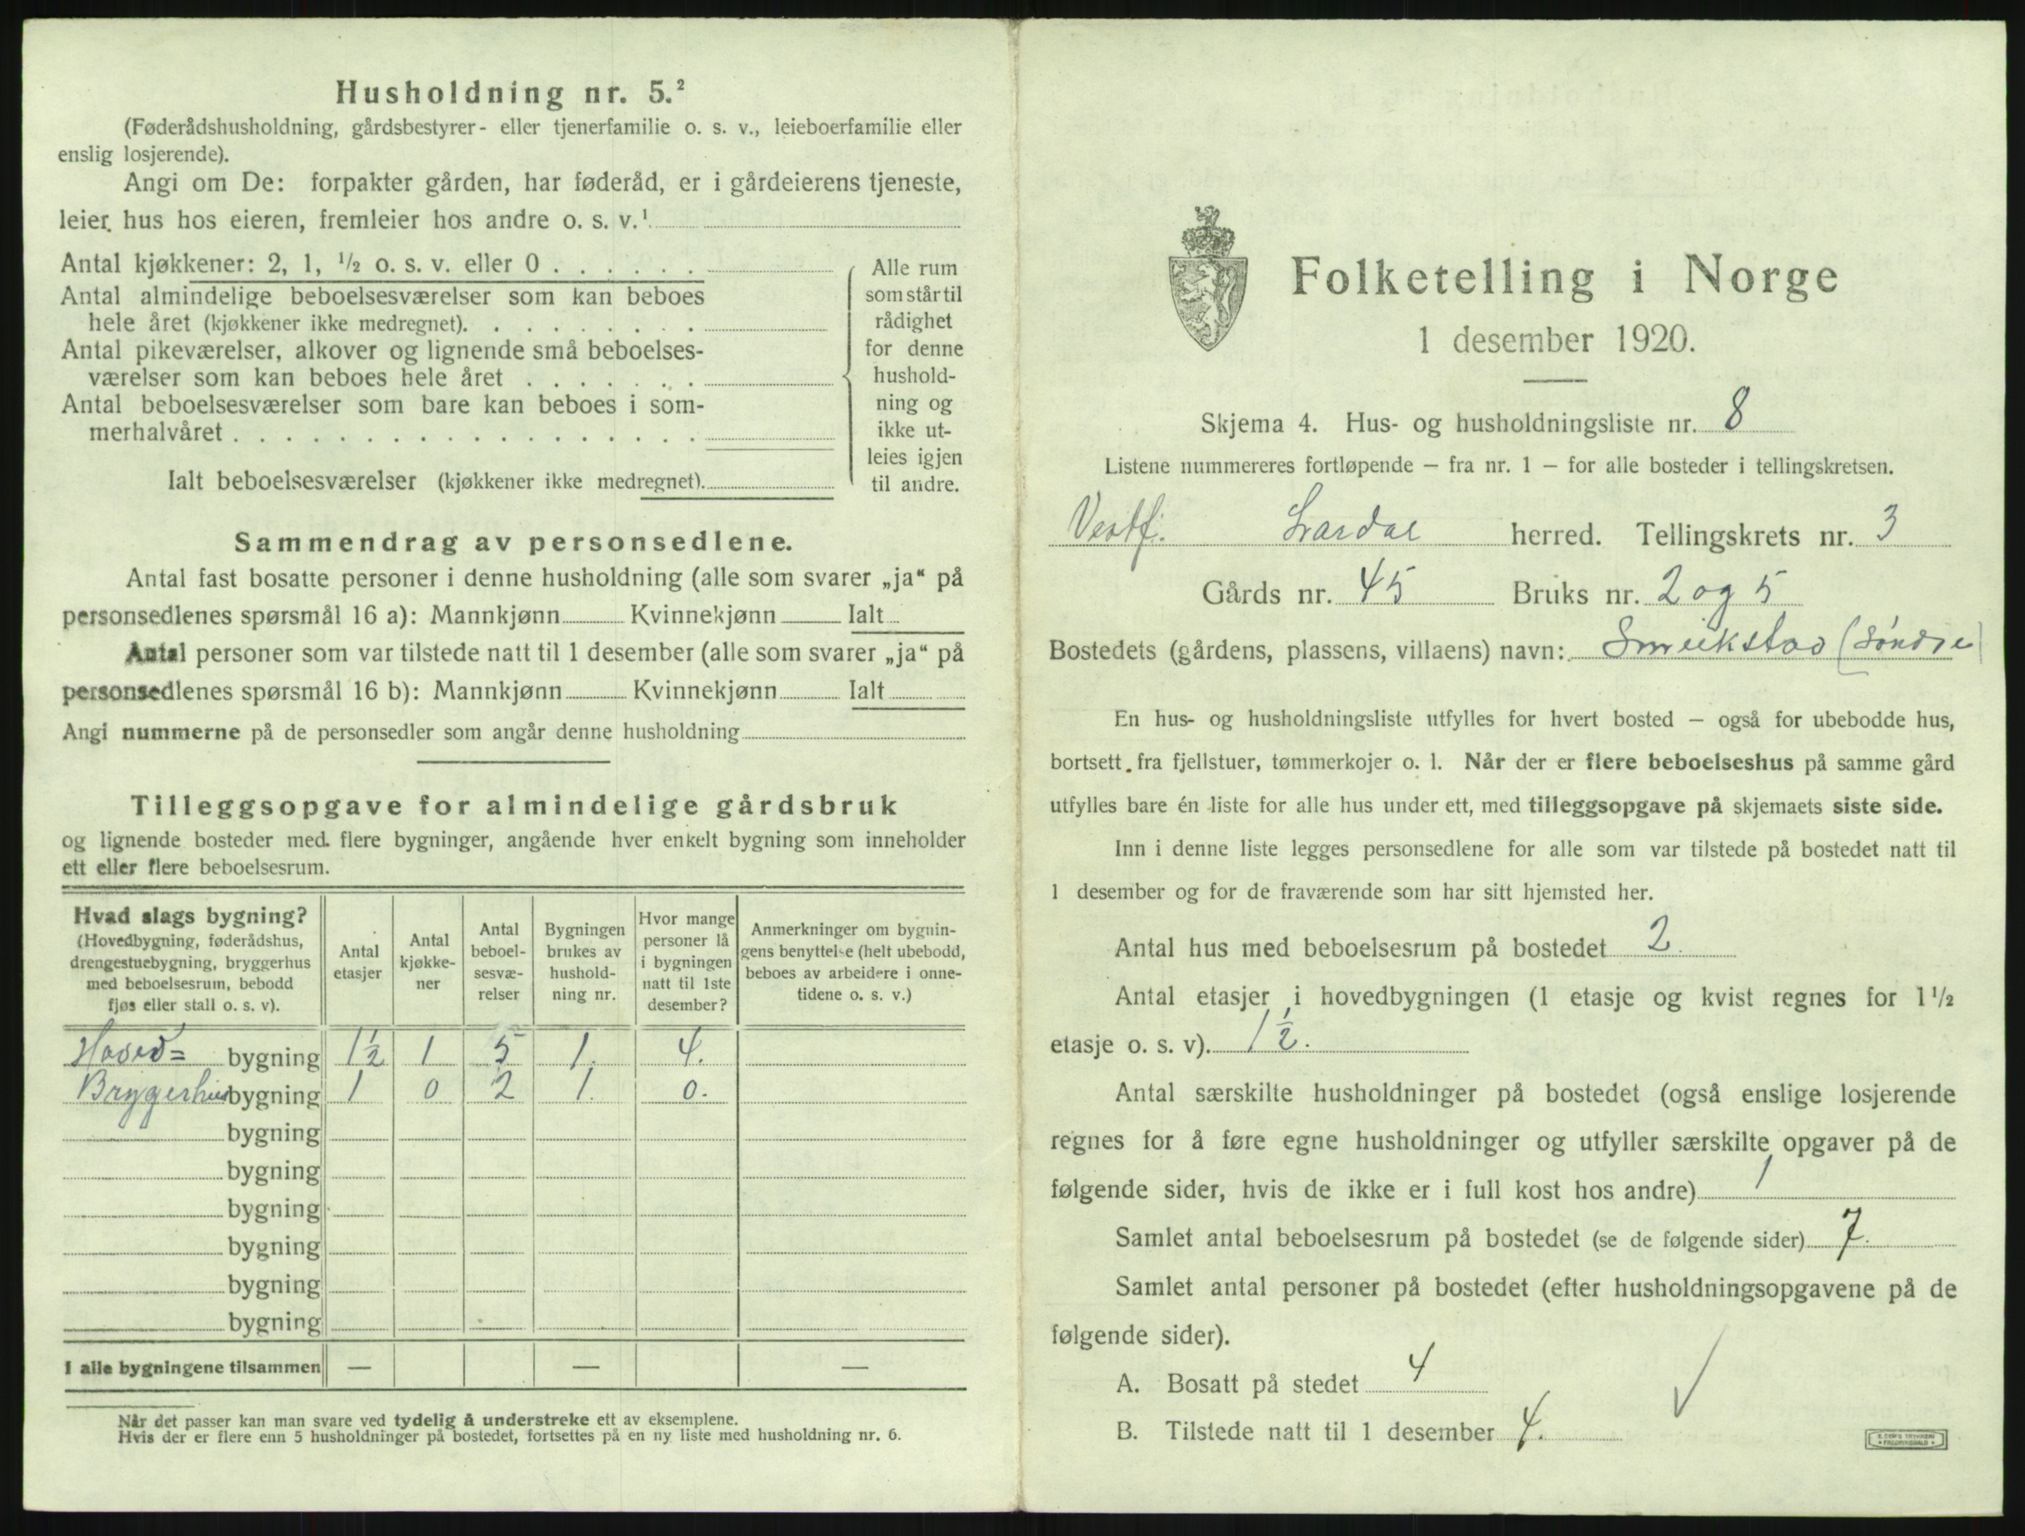 Husholdning nr. 5.²
(Føderådshusholdning, gårdsbestyrer- eller tjenerfamilie o. s. v., leieboerfamilie eller
enslig losjerende).
Angi om De: forpakter gården, har føderåd, er i gårdeierens tjeneste,
leier hus hos eieren, fremleier hos andre o. s. v.¹
Antal kjøkkener: 2, 1, ½ o. s. v. eller 0 . . . . . .
Antal almindelige beboelsesværelser som kan beboes
hele året (kjøkkener ikke medregnet). . . . . . . . .
Antal pikeværelser, alkover og lignende små beboelses-
værelser som kan beboes hele året . . . . . . .
Antal beboelsesværelser som bare kan beboes i som-
merhalvåret . . . . . . . . . . . . . . . . . .
Ialt beboelsesværelser (kjøkkener ikke medregnet).
Alle rum
som står til
rådighet
for denne
hushold-
ning og
ikke ut-
leies igjen
til andre.
Sammendrag av personsedlene.
Antal fast bosatte personer i denne husholdning (alle som svarer „ja“ på
personsedlenes spørsmål 16 a): Mannkjønn Kvinnekjønn Ialt
Antal personer som var tilstede natt til 1 desember (alle som svarer „ja“ på
personsedlenes spørsmål 16 b): Mannkjønn Kvinnekjønn Ialt
Angi nummerne på de personsedler som angår denne husholdning
Tilleggsopgave for almindelige gårdsbruk
og lignende bosteder med flere bygninger, angående hver enkelt bygning som inneholder
ett eller flere beboelsesrum.
Hvad slags bygning?
(Hovedbygning, føderådshus,
drengestuebygning, bryggerhus
med beboelsesrum, bebodd
fjøs eller stall o. s. v).
Antal
etasjer
Antal
kjøkke-
ner
Antal
beboel-
sesvæ-
relser
Bygningen
brukes av
hushold-
ning nr.
Hvor mange
personer lå
i bygningen
natt til 1ste
desember?
Anmerkninger om bygnin-
gens benyttelse (helt ubebodd,
beboes av arbeidere i onne-
tidene o. s. v.)
Hoved= bygning 1½ 1 5 1. 4.
Bryggerhus bygning 1 0 2 1. 0.
bygning
bygning
bygning
bygning
bygning
bygning
I alle bygningene tilsammen — — —
Når det passer kan man svare ved tydelig å understreke ett av eksemplene.
Hvis der er flere enn 5 husholdninger på bostedet, fortsettes på en ny liste med husholdning nr. 6.
Folketelling i Norge
1 desember 1920.
Skjema 4. Hus- og husholdningsliste nr. 8
Listene nummereres fortløpende — fra nr. 1 — for alle bosteder i tellingskretsen.
Vestf. Lardal herred. Tellingskrets nr. 3
Gårds nr. 45 Bruks nr. 2 og 5
Bostedets (gårdens, plassens, villaens) navn: (Søndre)
En hus- og husholdningsliste utfylles for hvert bosted — også for ubebodde hus,
bortsett fra fjellstuer, tømmerkojer o. l. Når der er flere beboelseshus på samme gård
utfylles bare én liste for alle hus under ett, med tilleggsopgave på skjemaets siste side.
Inn i denne liste legges personsedlene for alle som var tilstede på bostedet natt til
1 desember og for de fraværende som har sitt hjemsted her.
Antal hus med beboelsesrum på bostedet 2.
Antal etasjer i hovedbygningen (1 etasje og kvist regnes for 1½
etasje o. s. v). 1½.
Antal særskilte husholdninger på bostedet (også enslige losjerende
regnes for å føre egne husholdninger og utfyller særskilte opgaver på de
følgende sider, hvis de ikke er i full kost hos andre) 1
Samlet antal beboelsesrum på bostedet (se de følgende sider) 7.
Samlet antal personer på bostedet (efter husholdningsopgavene på de
følgende sider).
A. Bosatt på stedet 4
B. Tilstede natt til 1 desember 4.